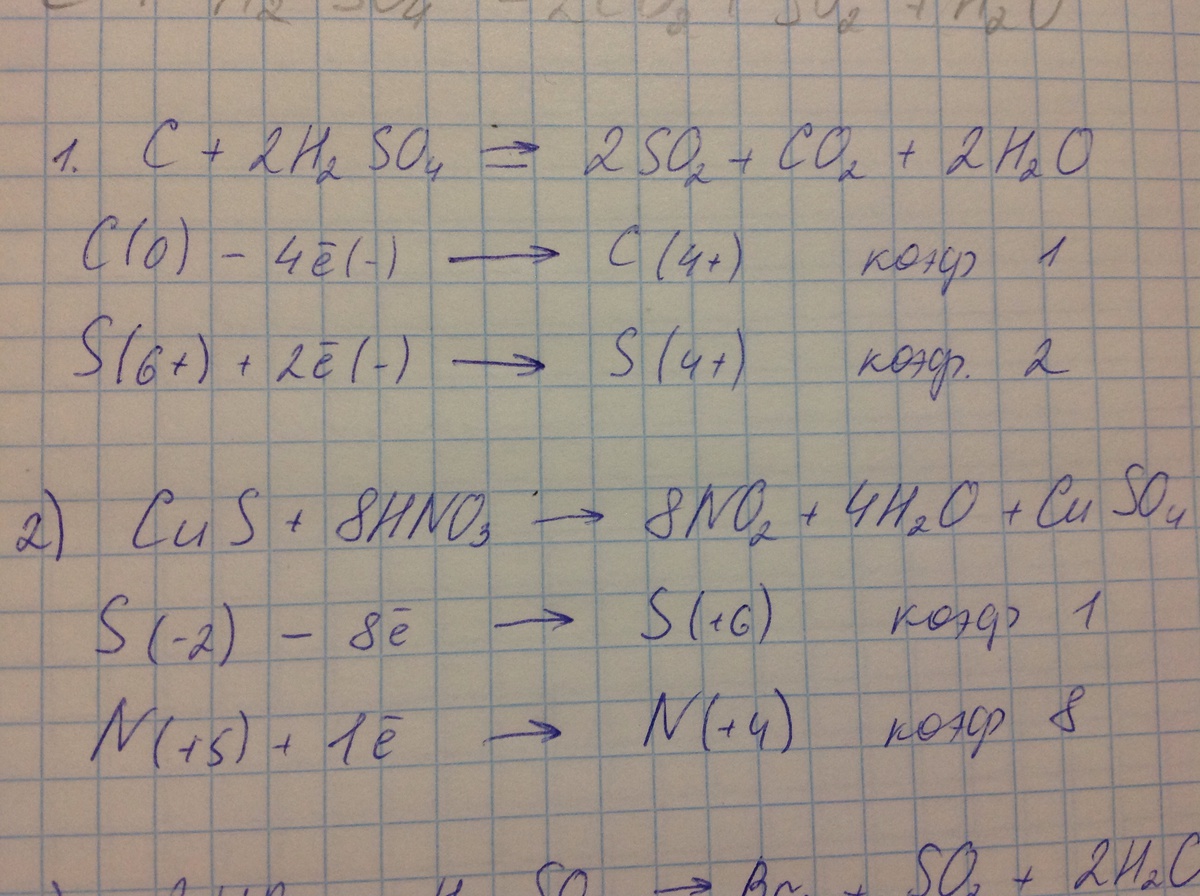 C + H₂SO₄ = 2CO₂ + SO₂ + H₂O
1. C + 2H₂SO₄ ⇒ 2SO₂ + CO₂ + 2H₂O
C(0) - 4ē(-) → C(4+) коэф 1
S(6+) + 2ē(-) → S(4+) коэф. 2
2) CuS + 8HNO₃ → 8NO₂ + 4H₂O + CuSO₄
S(-2) - 8ē → S(+6) коэф 1
N(+5) + 1ē → N(+4) коэф 8
→ Br₂ + SO₂ + 2H₂O